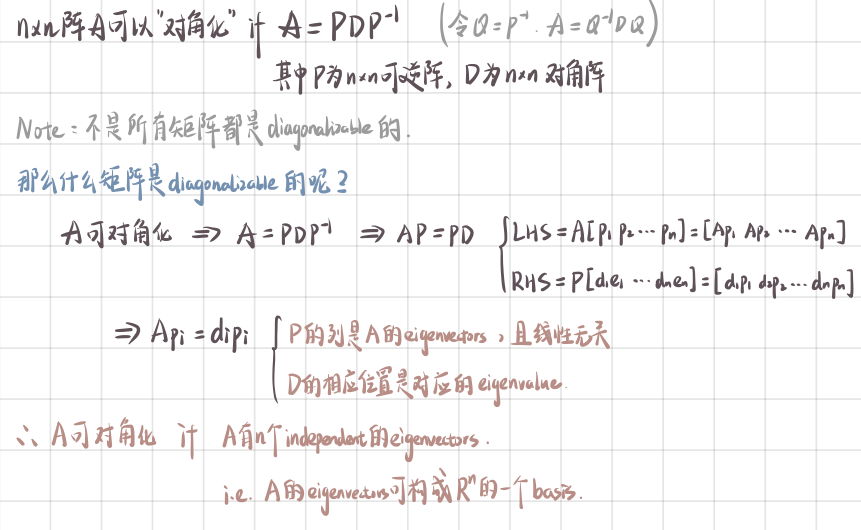 n×n阵A可以“对角化” if A = PDP⁻¹ (令Q = P⁻¹. A = Q⁻¹DQ)
其中P为n×n可逆阵, D为n×n对角阵
Note: 不是所有矩阵都是diagonalizable的.
那么什么矩阵是diagonalizable的呢?
A可对角化 ⇒ A = PDP⁻¹ ⇒ AP = PD { LHS = A[p₁ p₂ ⋯ pₙ] = [Ap₁ Ap₂ ⋯ Apₙ]
RHS = P[d₁e₁ ⋯ dₙeₙ] = [d₁p₁ d₂p₂ ⋯ dₙpₙ]
⇒ Apᵢ = dᵢpᵢ { P的列是A的eigenvectors, 且线性无关
D的相应位置是对应的eigenvalue.
∴ A可对角化 iff A有n个independent的eigenvectors.
i.e. A的eigenvectors可构成Rⁿ的一个basis.